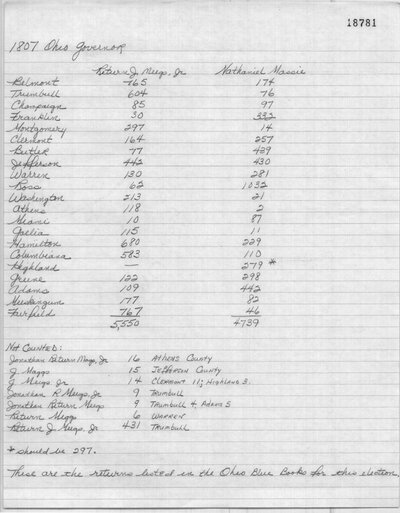 18781
1807 Ohio Governor
Return J. Meigs, Jr Nathaniel Massie
Belmont 765 174
Trumbull 604 76
Champaign 85 97
Franklin 30 332
Montgomery 297 14
Clermont 164 257
Butler 77 439
Jefferson 442 430
Warren 130 281
Ross 62 1032
Washington 213 21
Athens 118 2
Miami 10 87
Gallia 115 11
Hamilton 680 229
Columbiana 583 110
Highland — 279 *
Greene 122 298
Adams 109 442
Muskingum 177 82
Fairfield 767 46
5,550 4739
Not Counted:
Jonathan Return Meigs, Jr 16 Athens County
J Maggs 15 Jefferson County
J Meigs, Jr 14 Clermont 11; Highland 3.
Jonathan R Meigs, Jr 9 Trumbull
Jonathan Return Meigs 9 Trumbull 4, Adams 5
Return Meggs 6 Warren
Return J Meigs, Jr 431 Trumbull
* should be 297.
These are the returns listed in the Ohio Blue Books for this election.